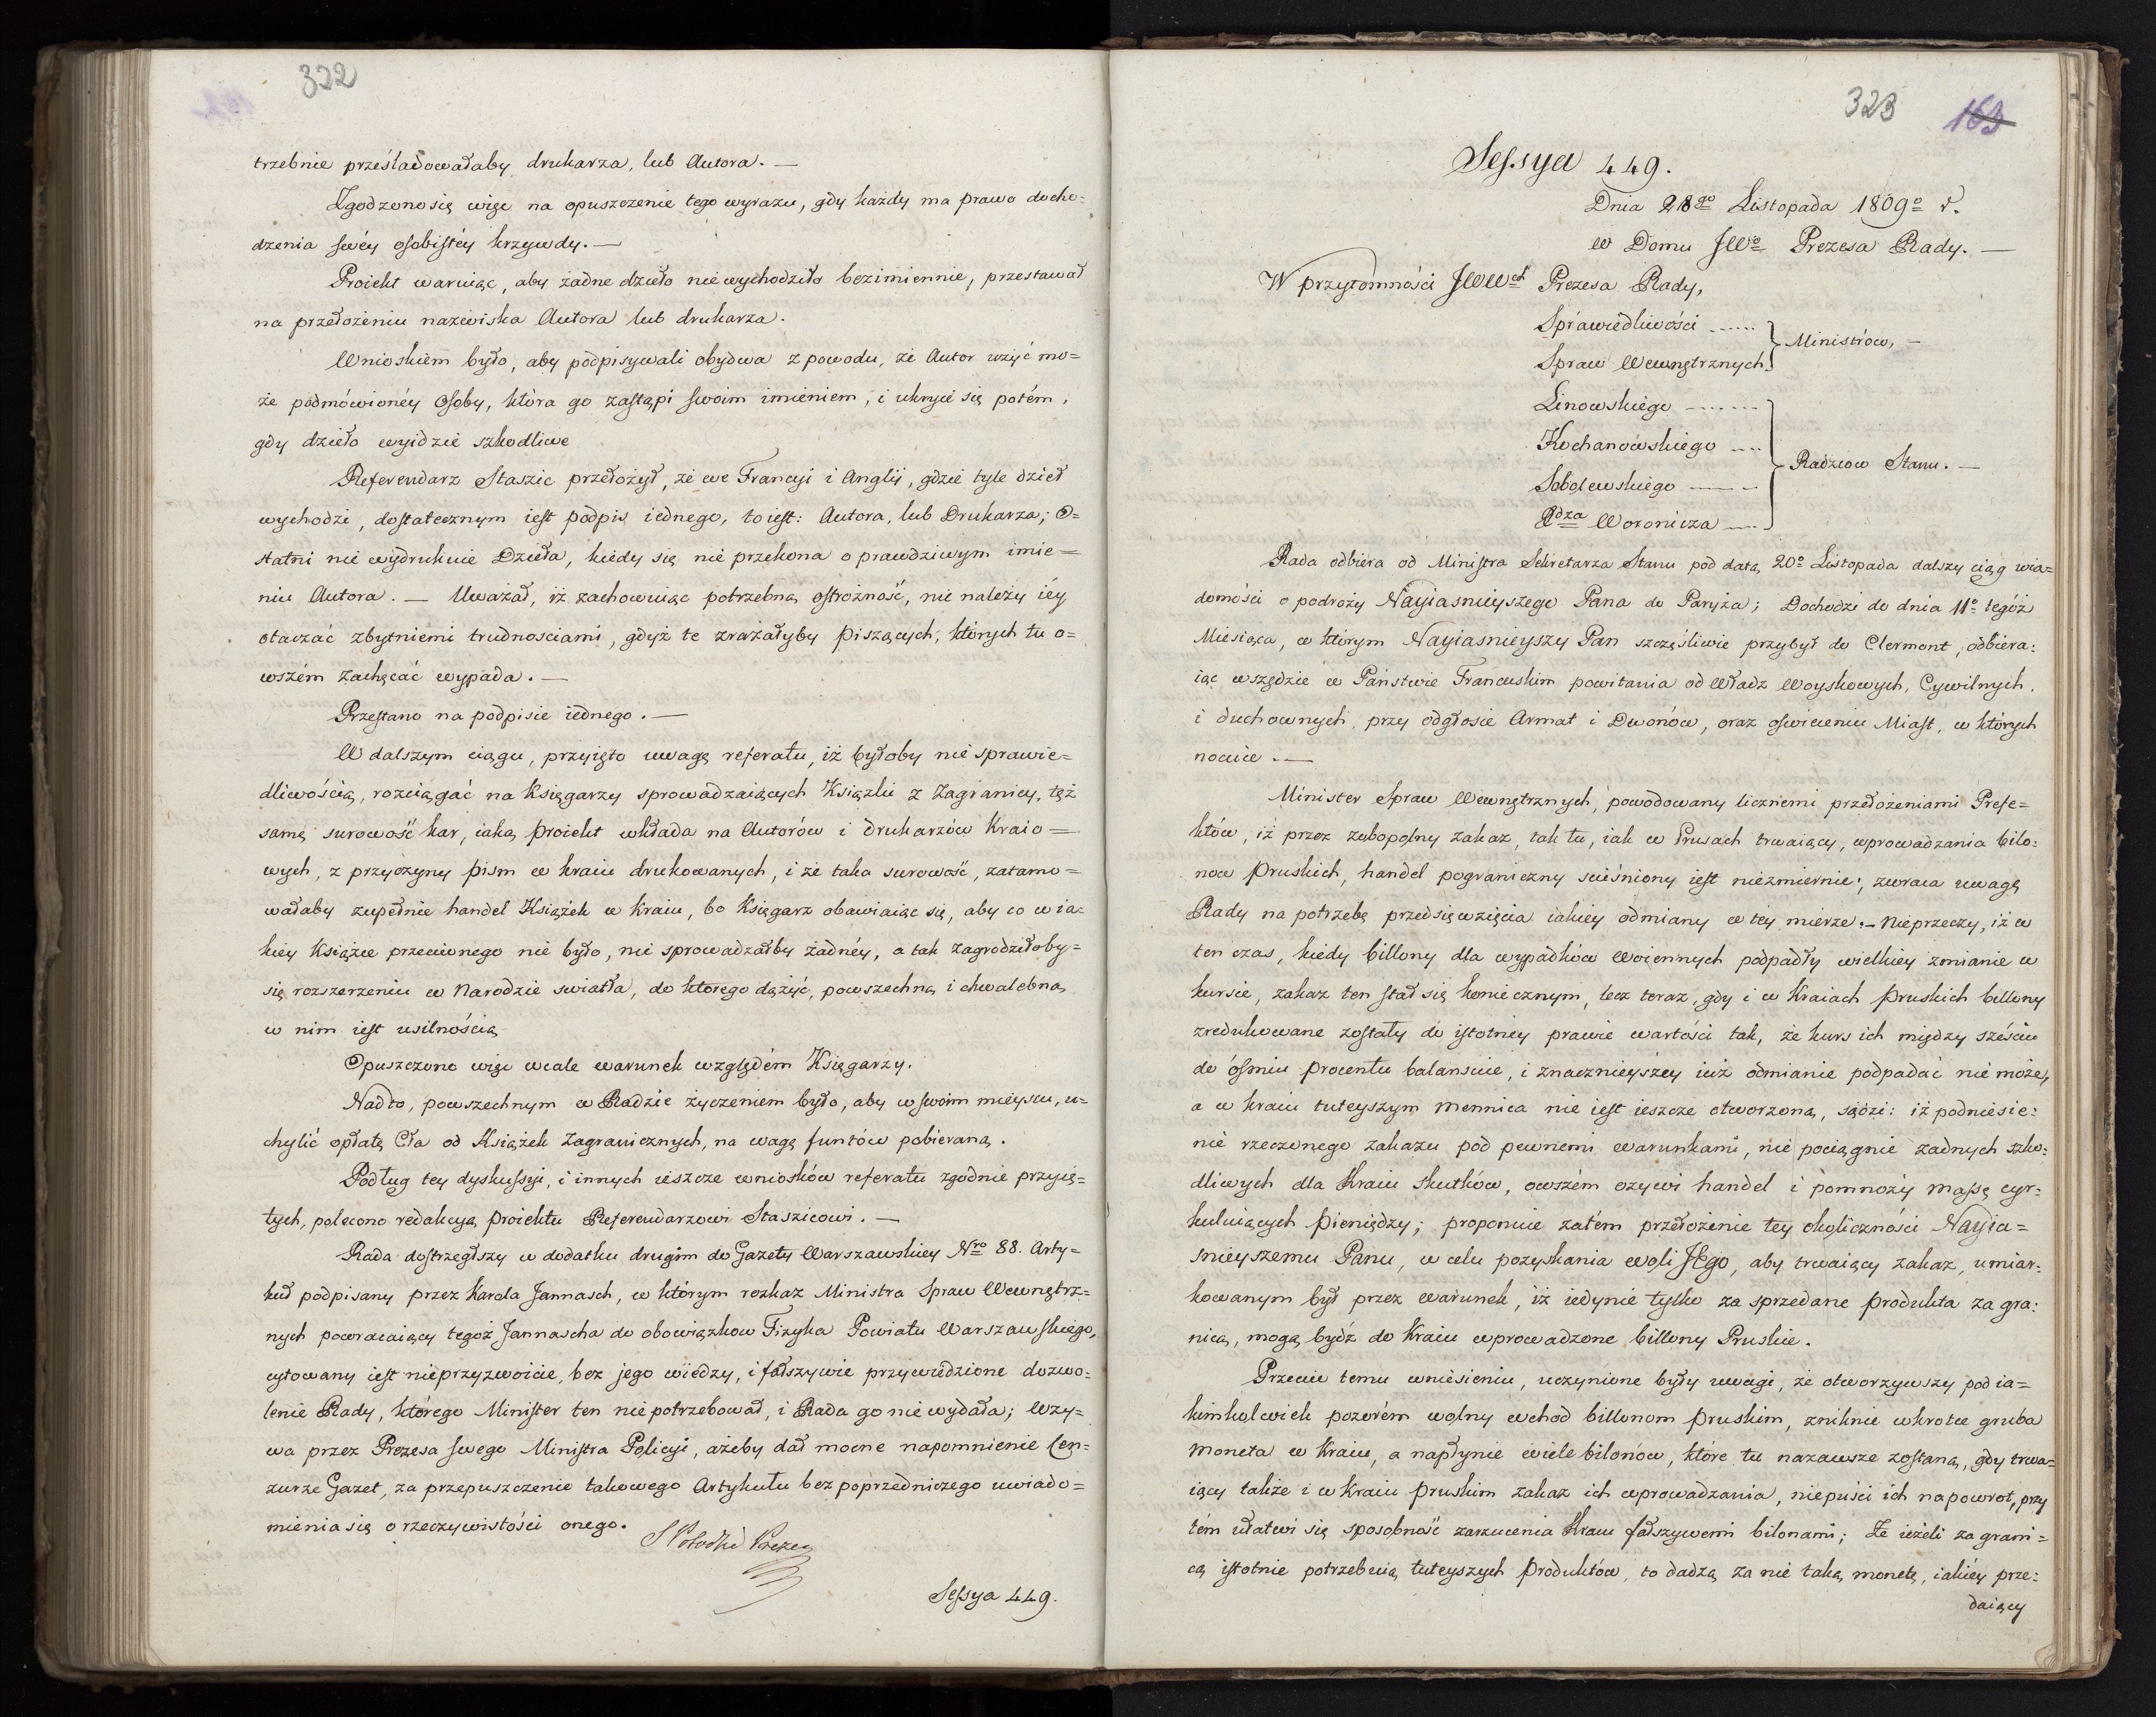 322
trzebnie prześladowałaby drukarza, lub Autora. —
Zgodzono się więc na opuszczenie tego wyrazu, gdy każdy ma prawo docho=
dzenia swéy osobistéy krzywdy. —
Proiekt waruiąc, aby żadne dzieło nie wychodziło bezimiennie, przestawał
na przełożeniu nazwiska Autora lub drukarza.
Wnioskiem było, aby podpisywali obydwa z powodu, że Autor użyć mo=
że podmówionéy Osoby, która go zastąpi swoim imieniem, i ukryie się potém,
gdy dzieło wyidzie szkodliwe
Referendarz Staszic przełożył, że we Francyi i Anglij, gdzie tyle dzieł
wychodzi, dostatecznym iest podpis iednego, to iest: Autora, lub Drukarza; O=
statni nie wydrukuie Dzieła, kiedy się nie przekona o prawdziwym imie=
niu Autora. — Uważał, iż zachowuiąc potrzebną ostrożność, nie należy iéy
otaczać zbytniemi trudnosciami, gdyż te zrażałyby piszących, których tu o=
wszém zachęcać wypada. —
Przestano na podpisie iednego. —
W dalszym ciągu, przyięto uwagę referatu, iż byłoby nie sprawie=
dliwością, rozciągać na Księgarzy sprowadzaiących Książki z Zagranicy, tęż
samę surowość kar, iaką proiekt wkłada na Autorów i drukarzów Kraio=
wych, z przyczyny pism w kraiu drukowanych, i że taka surowość, zatamo=
wałaby zupełnie handel Książek w kraiu, bo Księgarz obawiaiąc się, aby co w ia=
kiey Książce przeciwnego nie było, nie sprowadzałby żadnéy, a tak zagrodziłoby=
się rozszerzeniu w Narodzie swiatła, do ktorego dążyć, powszechną i chwalebną
w nim iest usilnością
Opuszczono więc wcale warunek względém Księgarzy.
Nadto, powszechnym w Radzie życzeniem było, aby w swoim mieyscu, u=
chylić opłatę Cła od Książek Zagranicznych, na wagę funtów pobieraną.
Podług tey dyskussyi, i innych ieszcze wniosków referatu zgodnie przyię=
tych, polecono redakcyą proiektu Referendarzowi Staszicowi. —
Rada dostrzegłszy w dodatku drugim do Gazety Warszawskiey Nro 88. Arty=
kuł podpisany przez Karola Jannasch, w którym rozkaz Ministra Spraw Wewnętrz=
nych powracaiący tegoż Jannascha do obowiązkow Fizyka Powiatu Warszawskiego,
cytowany iest nieprzyzwoicie, bez jego wiedzy, i fałszywie przywiedzione dozwo=
lenie Rady, którego Minister ten nie potrzebował, i Rada go nie wydała; Wzy=
wa przez Prezesa swego Ministra Policyi, ażeby dał mocne napomnienie Cen=
zurze Gazet, za przepuszczenie takowego Artykułu bez poprzedniczego uwiado=
mienia się o rzeczywistości onego.
S Potocki Prezes
Sessya 449.
323 163
Sessya 449.
Dnia 28go Listopada 1809o r.
w Domu JWo Prezesa Rady. —
W przytomności JWWch Prezesa Rady,
Sprawiedliwości ......
Spraw Wewnętrznych } Ministrów, —
Linowskiego .......
Kochanowskiego ....
Sobolewskiego .....
Xdza Woronicza .... } Radzców Stanu. —
Rada odbiera od Ministra Sekretarza Stanu pod datą 20o Listopada dalszy ciąg wia=
domości o podroży Nayiasnieyszego Pana do Paryża; Dochodzi do dnia 11o tegóż
Miesiąca, w którym Nayiasnieyszy Pan szczęśliwie przybył do Clermont, odbiera=
iąc wszędzie w Państwie Francuskim powitania od Władz Woyskowych, Cywilnych,
i duchownych, przy odgłosie Armat i Dwonów, oraz oswieceniu Miast, w których
nocuie. —
Minister Spraw Wewnętrznych, powodowany licznemi przełożeniami Prefe=
któw, iż przez zobopolny zakaz, tak tu, iak w Prusach trwaiący, wprowadzania bilo=
now Pruskich, handel pograniczny sciśniony iest niezmiernie; zwraca uwagę
Rady na potrzebę przedsięwzięcia iakiey odmiany w tey mierze. — Nieprzeczy, iż w
ten czas, kiedy billony dla wypadków Woiennych podpadły wielkiey zmianie w
kursie, zakaz ten stał się koniecznym, lecz teraz, gdy i w Kraiach Pruskich billony
zredukowane zostały do istotney prawie wartości tak, że kurs ich między sześciu
do óśmiu procentu balansuie, i znacznieyszéy iuż odmianie podpadać nie może,
a w kraiu tuteyszym Mennica nie iest ieszcze otworzoną, sądzi: iż podniesie=
nie rzeczonego zakazu pod pewnemi warunkami, nie pociągnie żadnych szko=
dliwych dla Kraiu skutków, owszém ożywi handel i pomnoży massę cyr=
kuluiących pieniędzy; proponuie zatém przełożenie tey okoliczności Nayia=
śnieyszemu Panu, w celu pozyskania woli Jego, aby trwaiący zakaz, umiar=
kowanym był przez warunek, iż iedynie tylko za sprzedane produkta za gra=
nicą, mogą bydź do Kraiu wprowadzone billony Pruskie.
Przeciw temu wniesieniu, uczynione były uwagi, że otworzywszy pod ia=
kimkolwiek pozorém wolny wchod billonom pruskim, zniknie wkrotce gruba
moneta w Kraiu, a napłynie wiele bilonów, które tu nazawsze zostaną, gdy trwa=
iący także i w Kraiu pruskim zakaz ich wprowadzania, niepuści ich napowrot, przy
tém ułatwi się sposobność zarzucenia Kraiu fałszywemi bilonami; Że ieżeli za grani=
cą istotnie potrzebuią tuteyszych produktów, to dadzą za nie taką monetę, iakiéy prze=
daiący